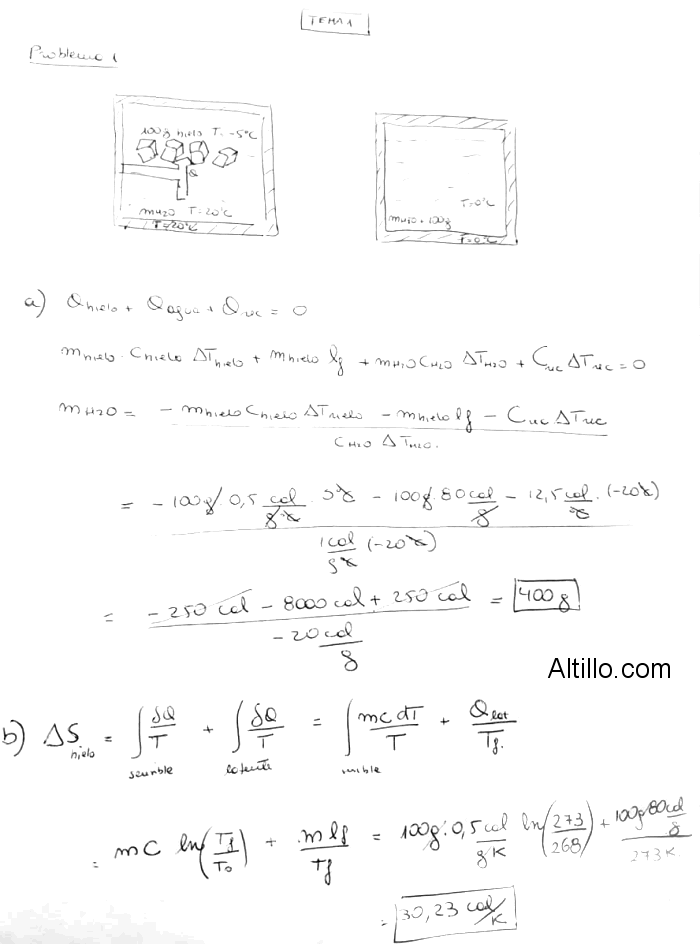 TEMA 1
Problema 1
100g hielo T = -5°C
Q
mH2O T=20°C
T=20°C
T=0°C
mH2O + 100g
T=0°C
a) Qhielo + Qagua + Qrec = 0
mhielo · Chielo ΔThielo + mhielo lf + mH2O CH2O ΔTH2O + Crec ΔTrec = 0
mH2O = (- mhielo Chielo ΔThielo - mhielo lf - Crec ΔTrec) / (CH2O ΔTH2O)
= (-100g 0,5 cal/(g·K) · 5K - 100g 80 cal/g - 12,5 cal/K · (-20K)) / (1 cal/(g·K) (-20K))
= (-250 cal - 8000 cal + 250 cal) / (-20 cal/g) = 400 g
Altillo.com
b) ΔShielo = ∫ δQ/T + ∫ δQ/T = ∫ mc dT/T + Qlat/Tf.
sensible latente sensible
= mC ln(Tf/T0) + m lf/Tf = 100g · 0,5 cal/(g K) ln(273/268) + 100g 80 cal/g / 273 K
= 30,23 cal/K